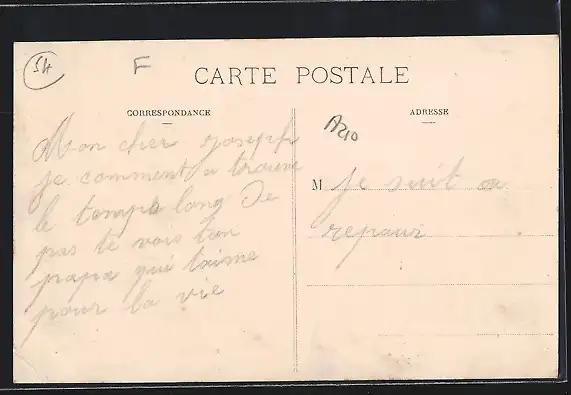 54
F
CARTE POSTALE
CORRESPONDANCE
ADRESSE
A210
Mon cher joseph
je comment a trouve
le temps long De
pas te vois ton
papa qui t'aime
pour la vie
M je suit au
repaur